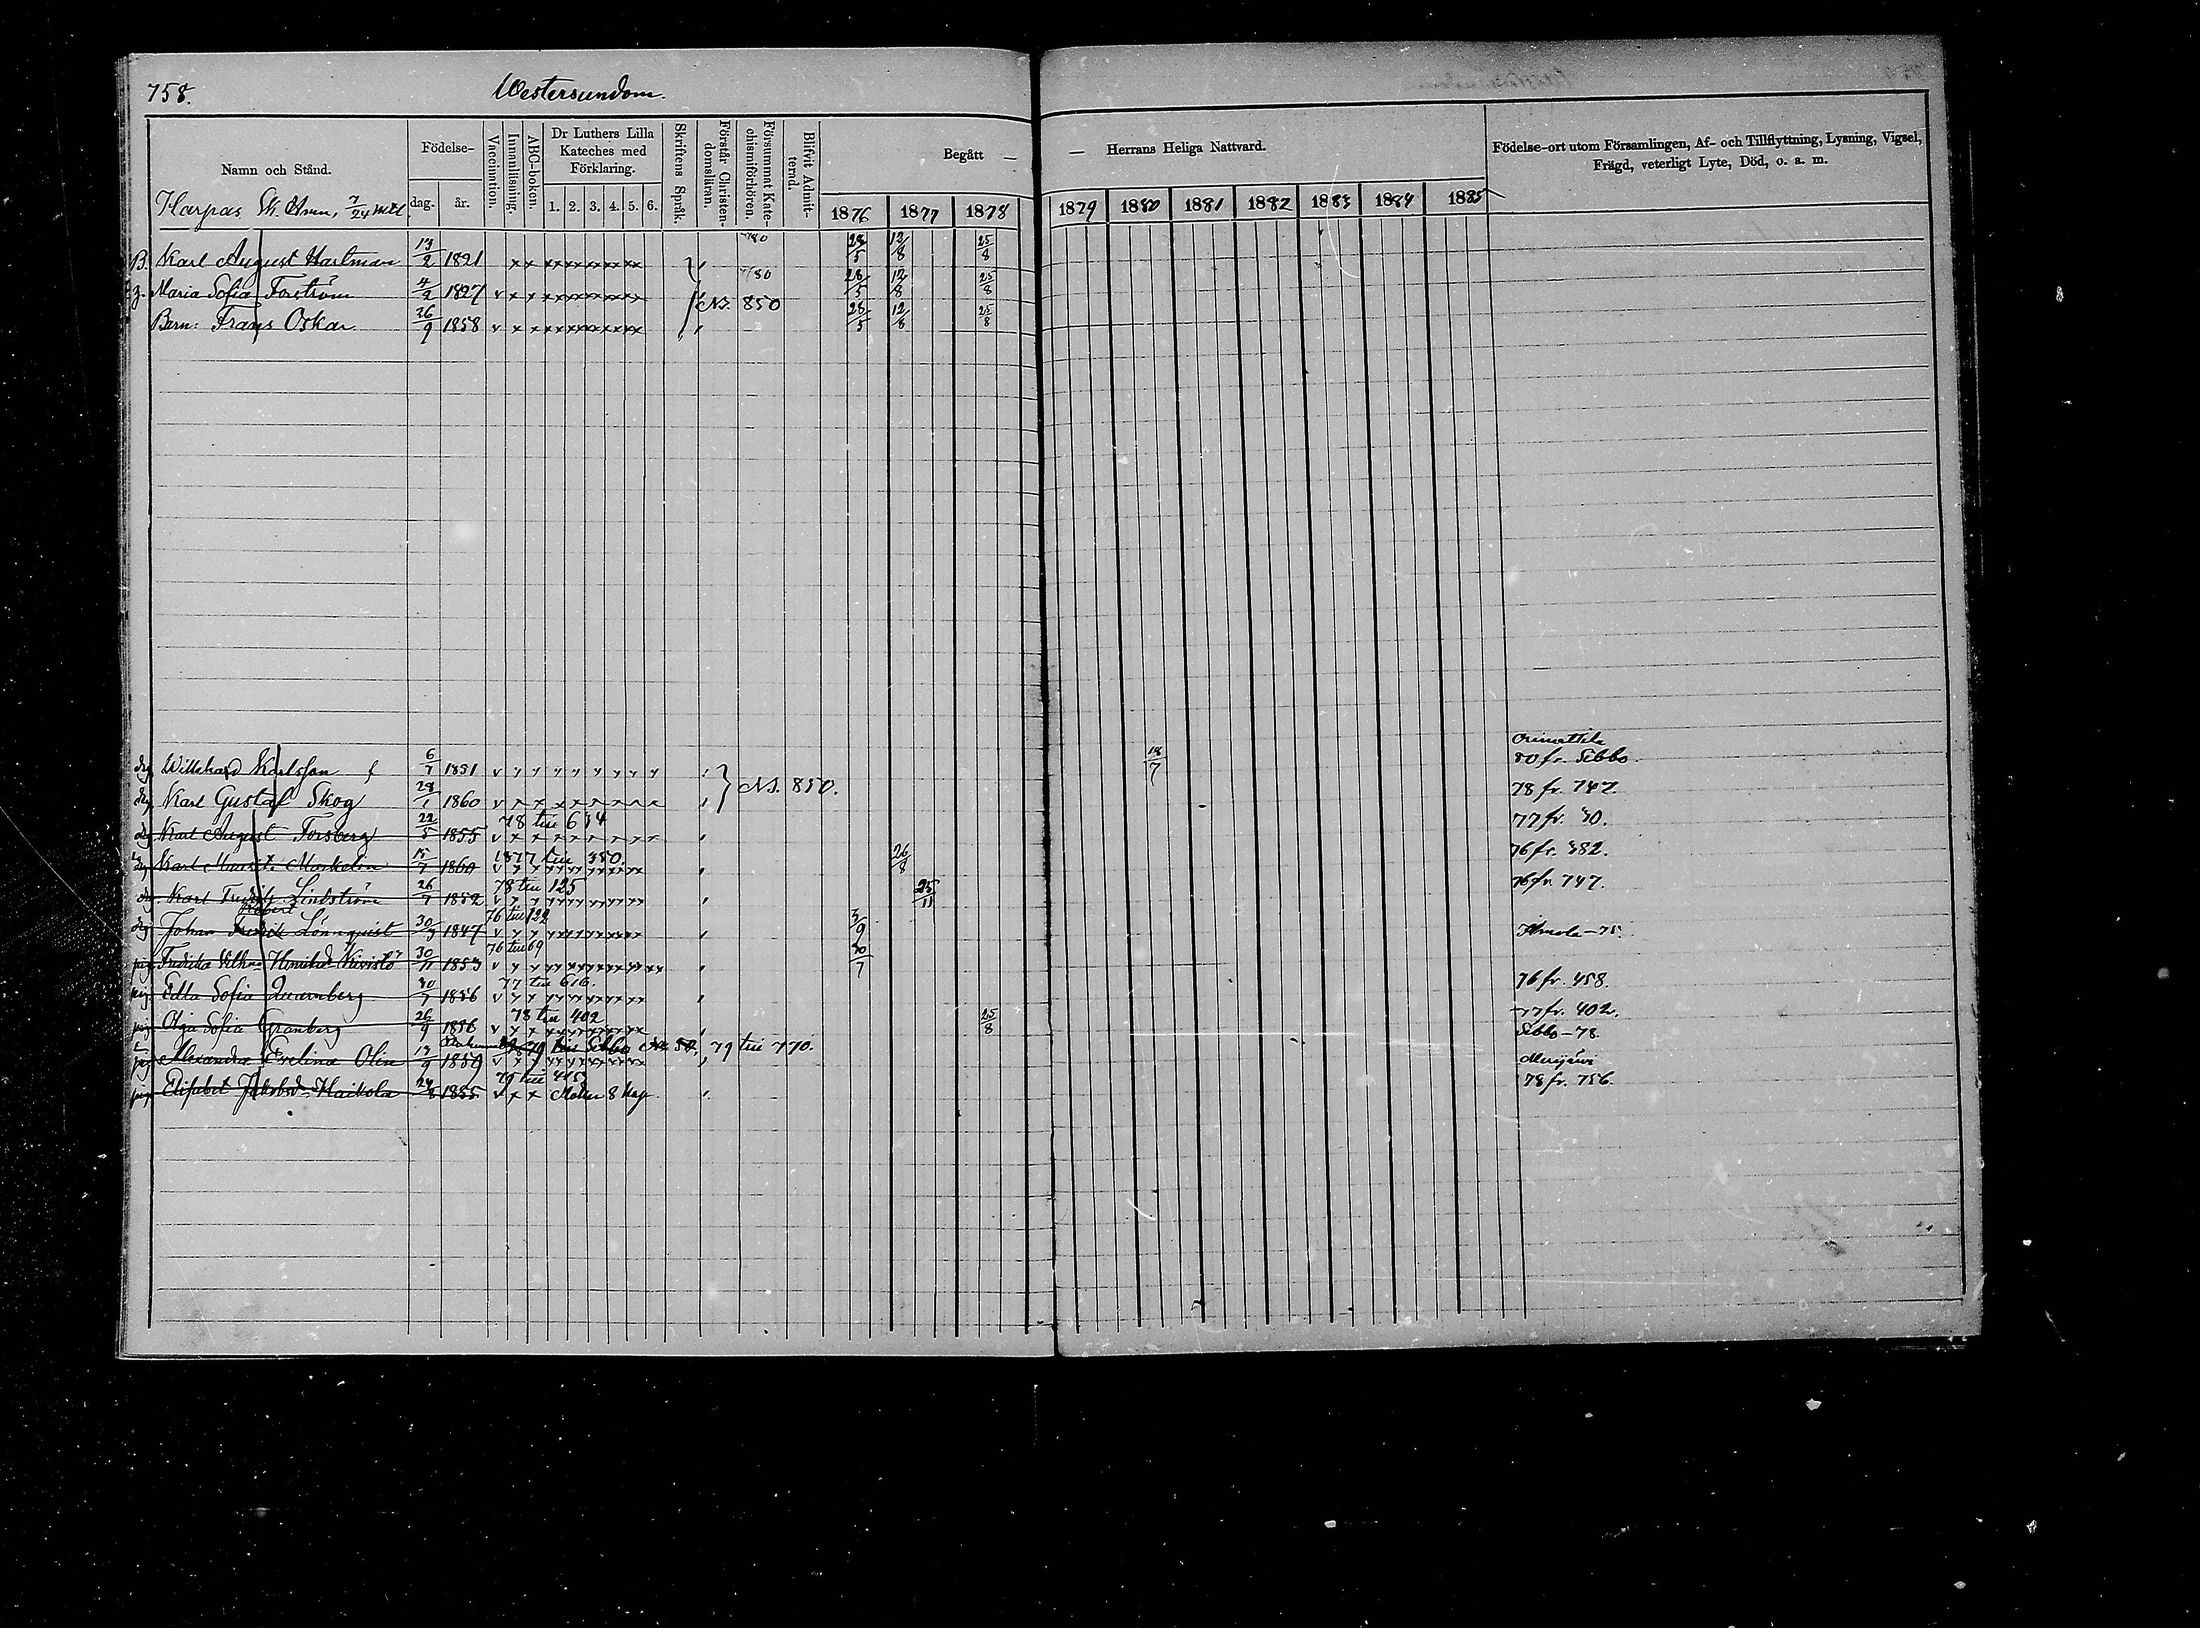 758.
Westersundom.
Namn och Stånd.
Födelse-
dag.
år.
Vaccination.
Innanläsning.
ABC-boken.
Dr Luthers Lilla
Kateches med
Förklaring.
1. 2. 3. 4. 5. 6.
Skriftens Språk.
Förstår Christen-
domsläran.
Försummat Kate-
chismiförhören.
Blifvit Admit-
terad.
Begått —
— Herrans Heliga Nattvard.
1876 1877 1878
1879 1880 1881 1882 1883 1884 1885
Födelse-ort utom Församlingen, Af- och Tillflyttning, Lysning, Vigsel,
Frägd, veterligt Lyte, Död, o. a. m.
Harpas 7/24 mtl
B. Karl August Hartman 13/2 1821 28/5 12/8 25/8
Maria Sofia Forström 4/2 1827 v x x 80 28/5 12/8 25/8
N.B. 850
Barn: Frans Oskar 26/9 1858 v x x 28/5 12/8 25/8
Orimattila
drg Willehard Karlsson 6/7 1851 18/7 80 fr. Sibbo
N.B. 850.
drg Karl Gustaf Skog 28/1 1860 78 fr. 747.
78 till 634
drg Karl August Forsberg 22/5 1855 77 fr. 30.
1877 till 350.
drg Karl Markelin 15/7 1860 26/8 76 fr. 382.
78 till 125
drg Karl Fredrik Lindström 26/7 1852 25/11 76 fr. 747.
Robert
76 till 122
drg Johan Lönnquist 30/3 1847 3/9
76 till 69
pig Fredrika Kivistö 30/11 1853 30/7
77 till 616.
pig Edla Sofia Quarnberg 30/7 1856 76 fr. 458.
78 till 402
pig Olga Sofia Granberg 26/9 1856 25/8 77 fr. 402.
Sibbo 79 till 770. Sibbo – 78.
pig Alexandra Evelina Olin 19/9 1859
pig Elisabet Haikola 24/8 1855 v x x 8 kap. 78 fr. 756.